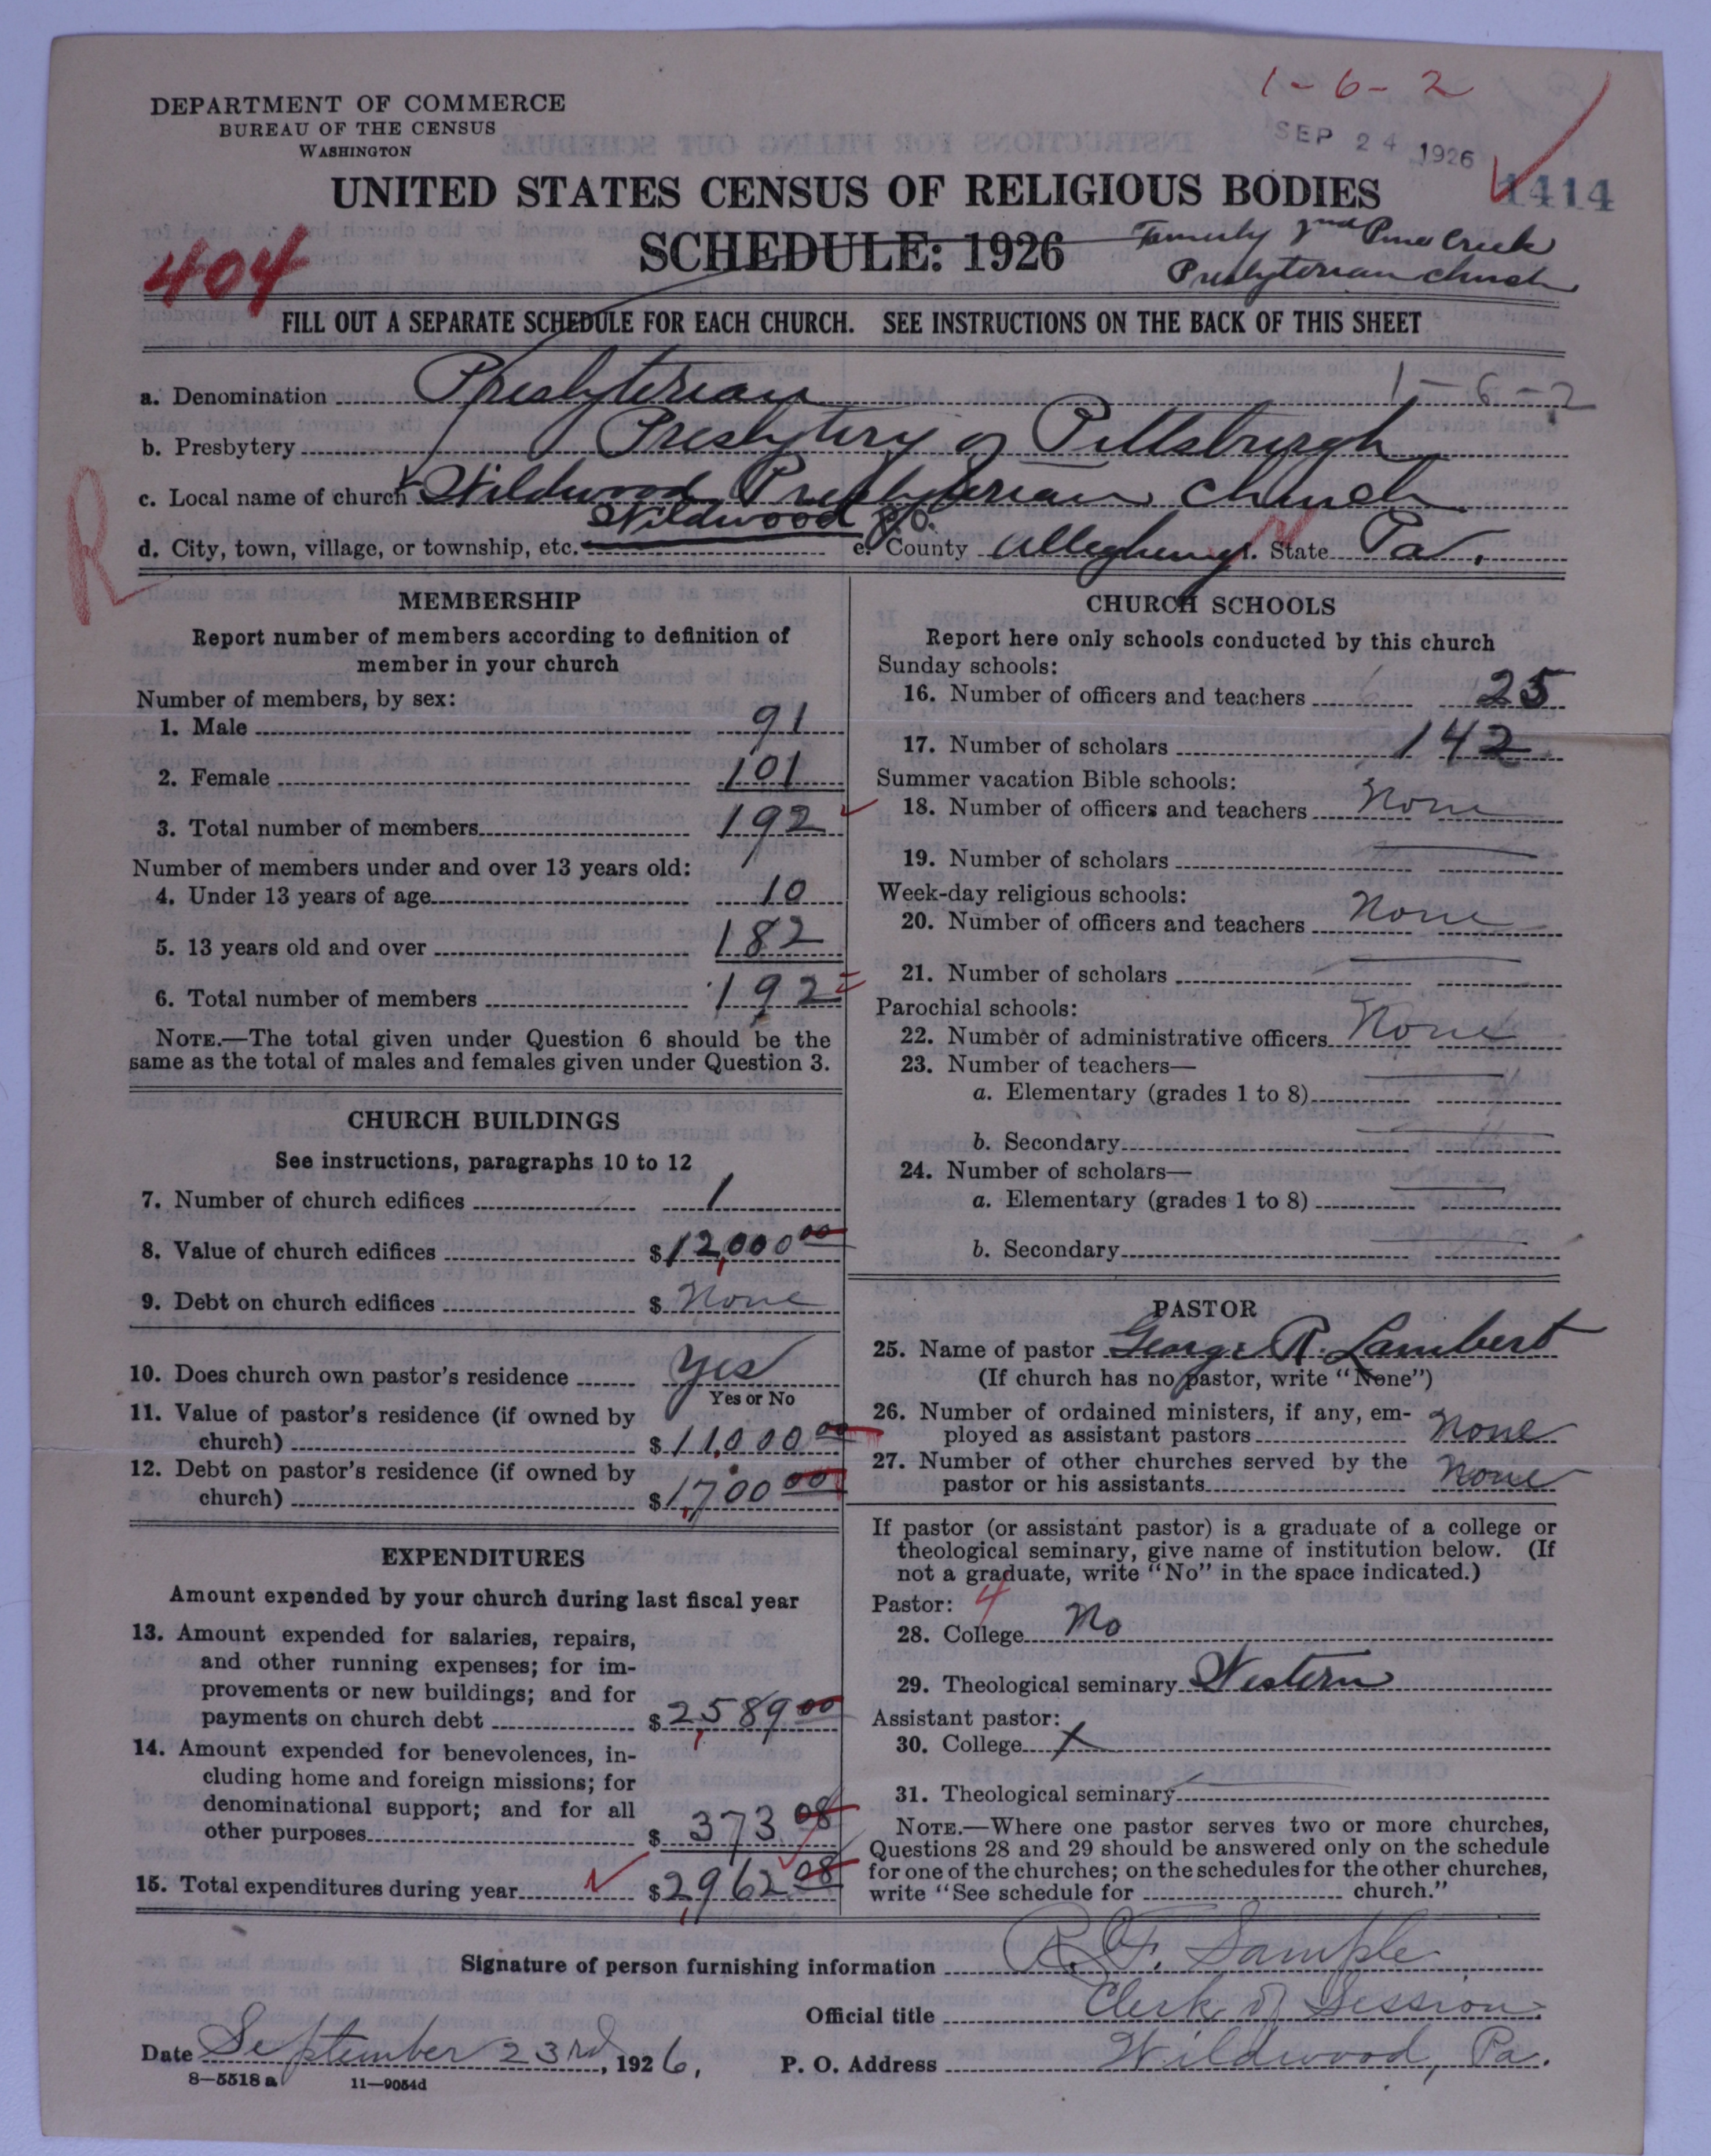 1-6-2
DEPARTMENT OF COMMERCE
BUREAU OF THE CENSUS
WASHINGTON
SEP 24 1926
1414
UNITED STATES CENSUS OF RELIGIOUS BODIES
SCHEDULE: 1926
Formerly 2nd Pine Creek
Presbyterian church
404
FILL OUT A SEPARATE SCHEDULE FOR EACH CHURCH. SEE INSTRUCTIONS ON THE BACK OF THIS SHEET
a. Denomination Presbyterian 1-6-2
b. Presbytery Presbytery of Pittsburgh
c. Local name of church Wildwood Presbyterian church
d. City, town, village, or township, etc. Wildwood P.O. e. County Allegheny f. State Pa.
R
MEMBERSHIP
Report number of members according to definition of
member in your church
Number of members, by sex:
1. Male 91
2. Female 101
3. Total number of members 192
Number of members under and over 13 years old:
4. Under 13 years of age 10
5. 13 years old and over 182
6. Total number of members 192
NOTE.—The total given under Question 6 should be the
same as the total of males and females given under Question 3.
CHURCH BUILDINGS
See instructions, paragraphs 10 to 12
7. Number of church edifices 1
8. Value of church edifices $12,000 00
9. Debt on church edifices $ None
10. Does church own pastor's residence Yes
Yes or No
11. Value of pastor's residence (if owned by
church) $11,000 00
12. Debt on pastor's residence (if owned by
church) $1,700 00
EXPENDITURES
Amount expended by your church during last fiscal year
13. Amount expended for salaries, repairs,
and other running expenses; for im-
provements or new buildings; and for
payments on church debt $2,589 00
14. Amount expended for benevolences, in-
cluding home and foreign missions; for
denominational support; and for all
other purposes $ 373 08
15. Total expenditures during year $2,962 08
CHURCH SCHOOLS
Report here only schools conducted by this church
Sunday schools:
16. Number of officers and teachers 25
17. Number of scholars 142
Summer vacation Bible schools:
18. Number of officers and teachers None
19. Number of scholars
Week-day religious schools:
20. Number of officers and teachers None
21. Number of scholars
Parochial schools:
22. Number of administrative officers None
23. Number of teachers—
a. Elementary (grades 1 to 8)
b. Secondary
24. Number of scholars—
a. Elementary (grades 1 to 8)
b. Secondary
PASTOR
25. Name of pastor George R. Lambert
(If church has no pastor, write "None")
26. Number of ordained ministers, if any, em-
ployed as assistant pastors None
27. Number of other churches served by the
pastor or his assistants None
If pastor (or assistant pastor) is a graduate of a college or
theological seminary, give name of institution below. (If
not a graduate, write "No" in the space indicated.)
Pastor: 4
28. College No
29. Theological seminary Western
Assistant pastor:
30. College X
31. Theological seminary
NOTE.—Where one pastor serves two or more churches,
Questions 28 and 29 should be answered only on the schedule
for one of the churches; on the schedules for the other churches,
write "See schedule for church."
Signature of person furnishing information R. F. Sample
Official title Clerk of Session
Date September 23rd, 1926, P. O. Address Wildwood, Pa.
8—5518 a 11—9054d